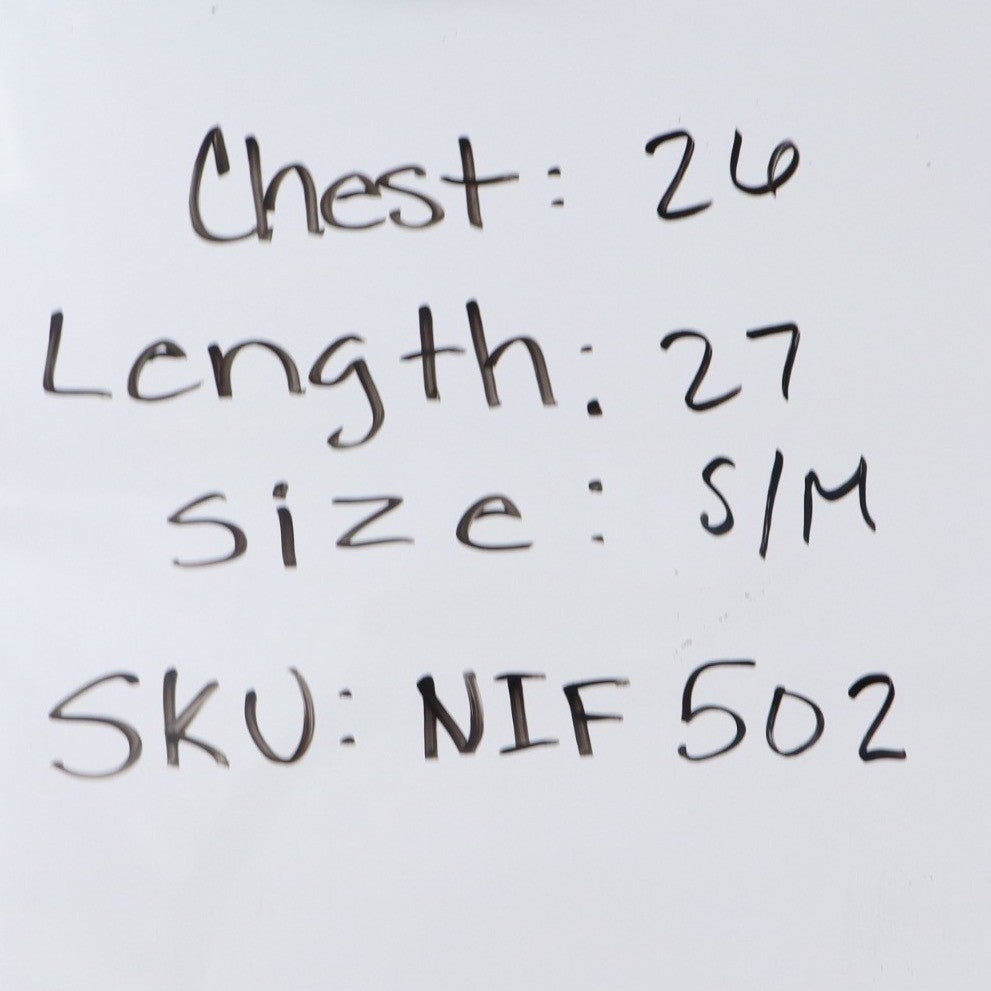 Chest: 26
Length: 27
Size: S/M
SKU: NIF 502